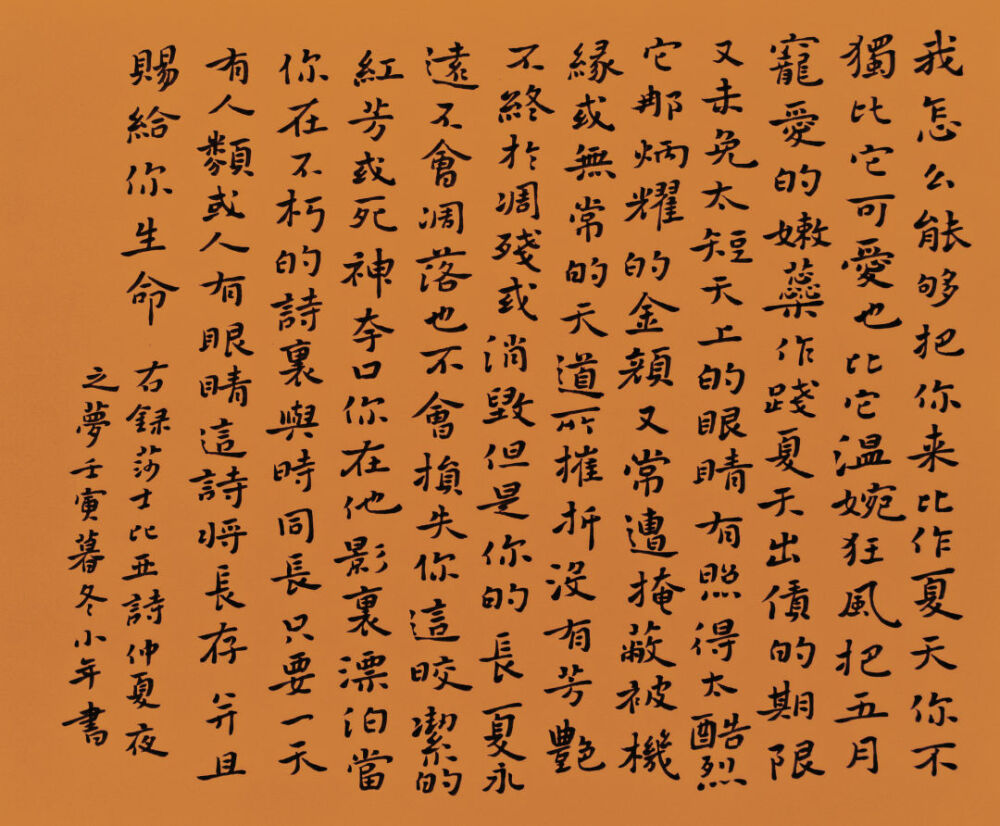 我怎么能够把你来比作夏天你不
獨比它可愛也比它溫婉狂風把五月
寵愛的嫩蕊作踐夏天出債的期限
又未免太短天上的眼睛有照得太酷烈
它那炳耀的金顏又常遭掩蔽被機
緣或無常的天道所摧折沒有芳艷
不終於凋殘或消毀但是你的長夏永
遠不會凋落也不會損失你這皎潔的
紅芳或死神夸口你在他影裏漂泊當
你在不朽的詩裏與時同長只要一天
有人類或人有眼睛這詩將長存并且
賜給你生命
右録莎士比亚詩仲夏夜
之夢壬寅暮冬小年書